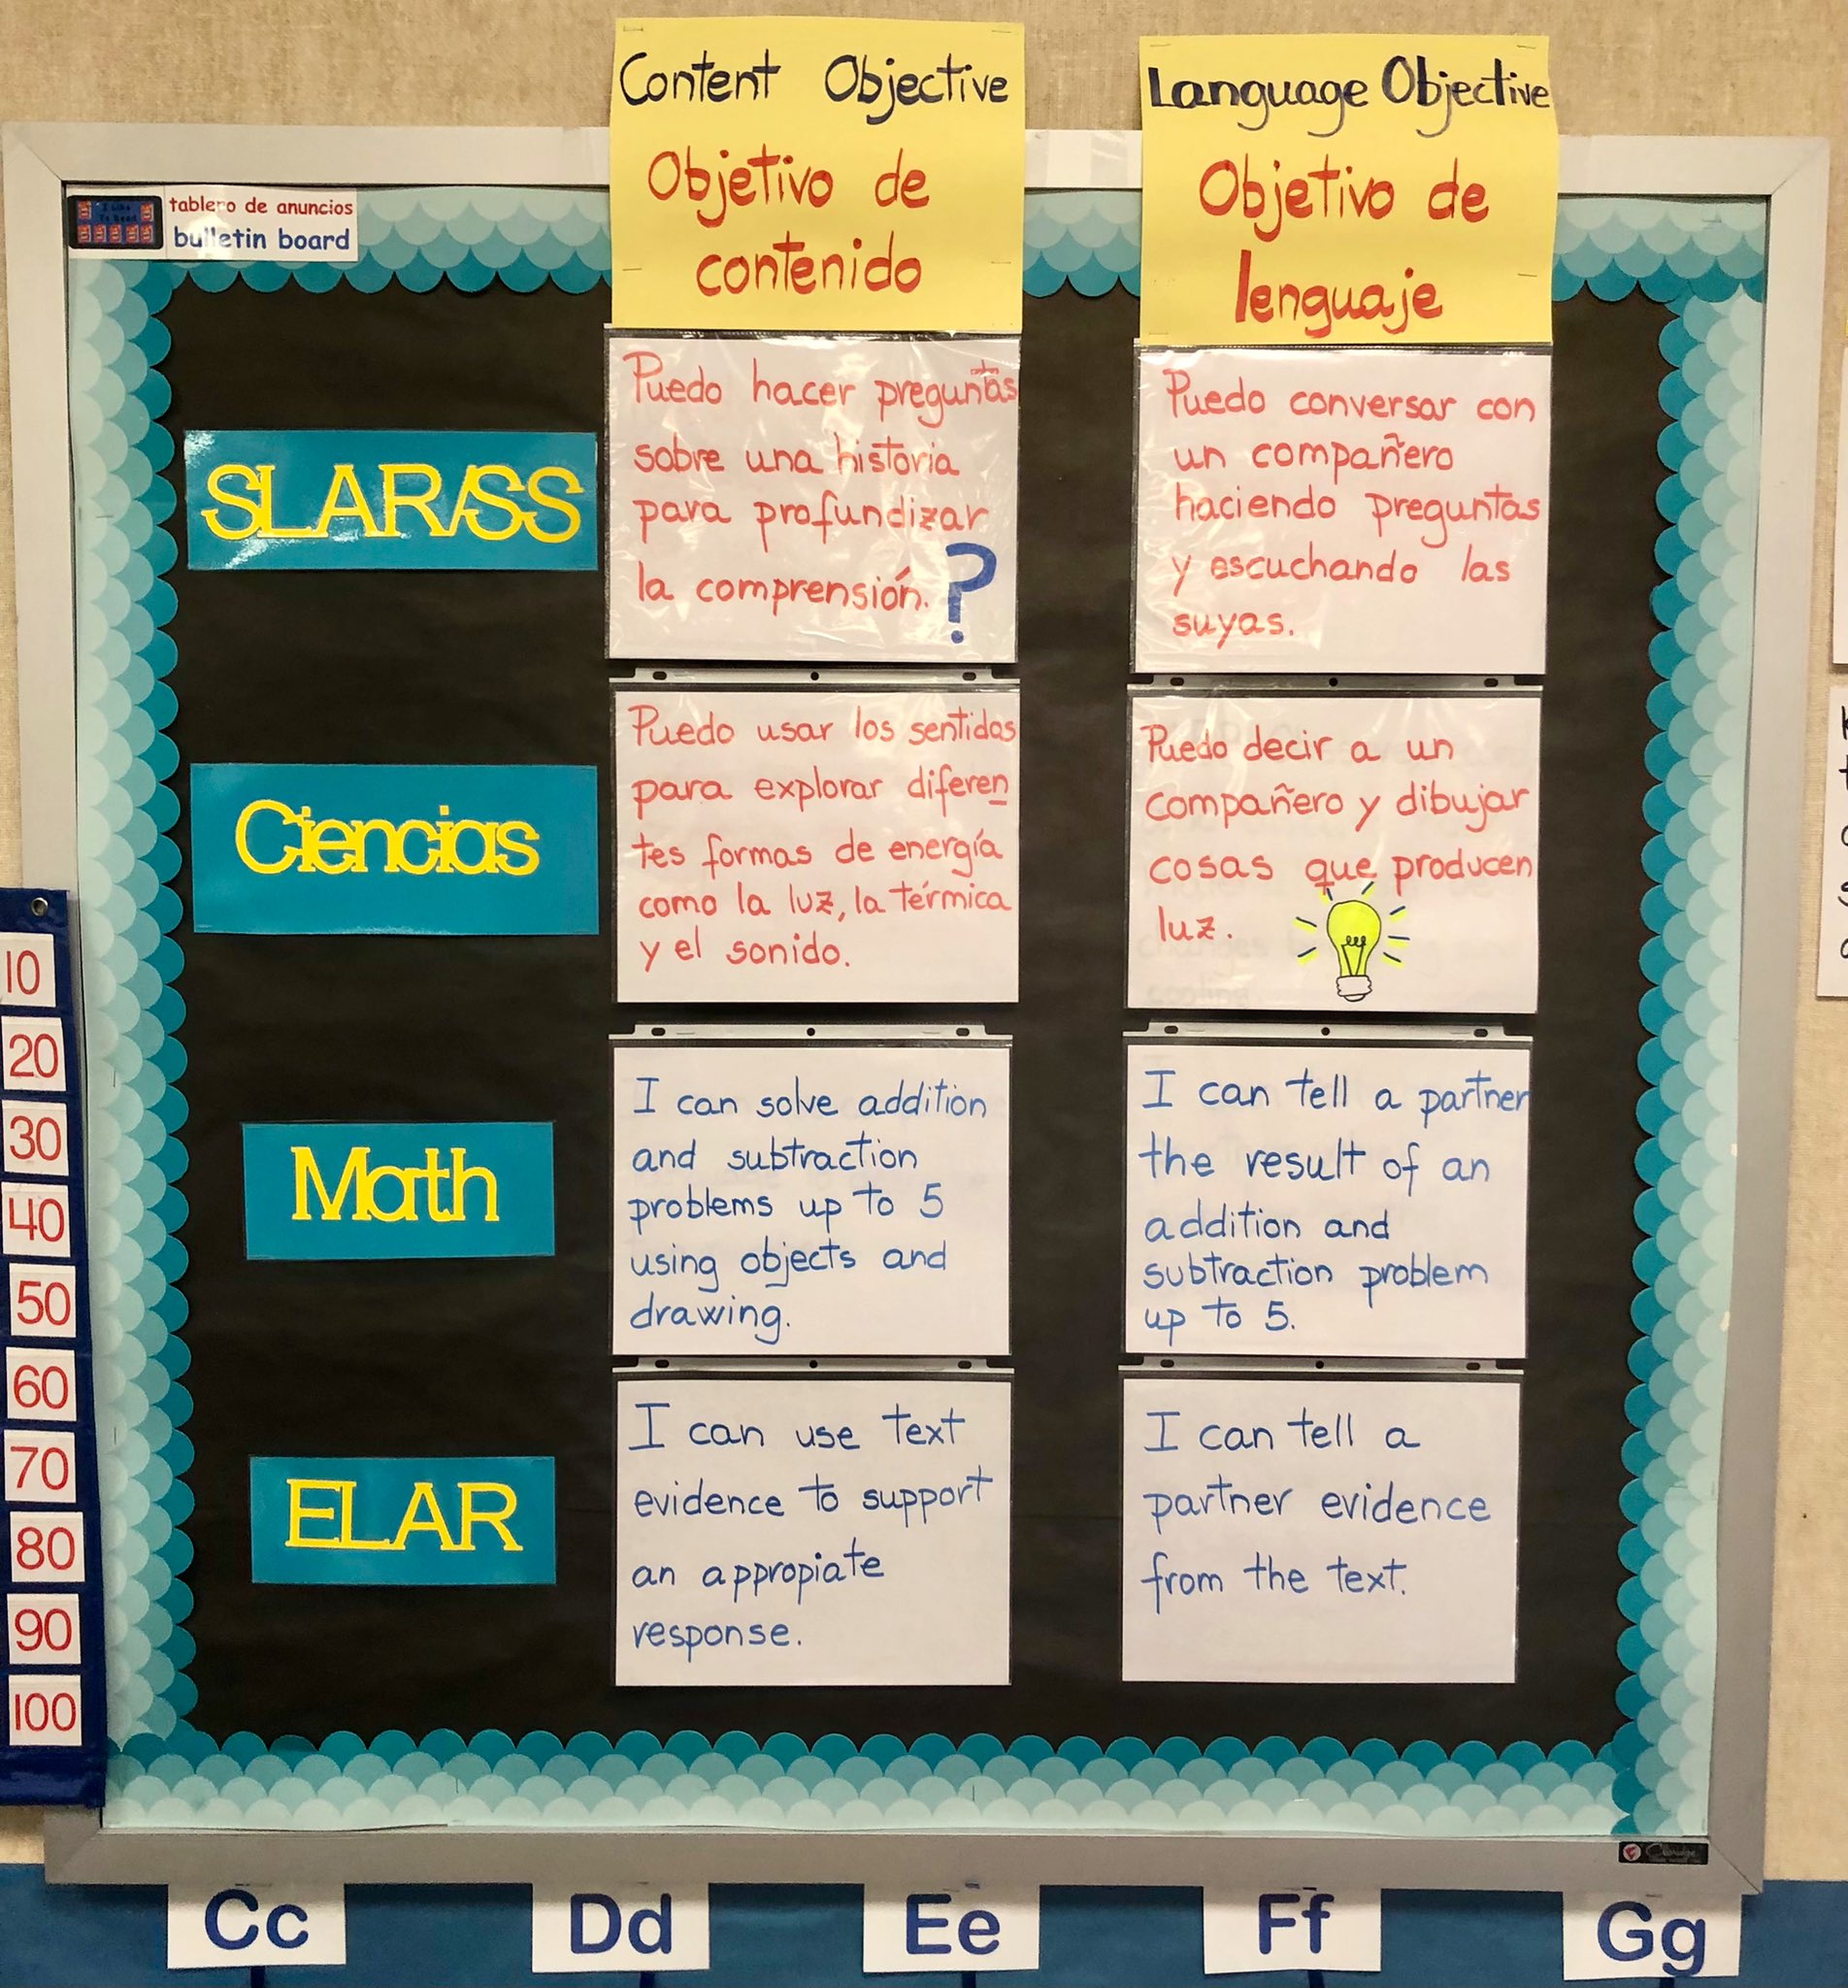 Content Objective
Objetivo de
contenido
Language Objective
Objetivo de
lenguaje
tablero de anuncios
bulletin board
SLAR/SS
Puedo hacer preguntas
sobre una historia
para profundizar
la comprensión. ?
Puedo conversar con
un compañero
haciendo preguntas
y escuchando las
suyas.
Ciencias
Puedo usar los sentidos
para explorar diferen
tes formas de energía
como la luz, la térmica
y el sonido.
Puedo decir a un
compañero y dibujar
cosas que producen
luz.
Math
I can solve addition
and subtraction
problems up to 5
using objects and
drawing.
I can tell a partner
the result of an
addition and
subtraction problem
up to 5.
ELAR
I can use text
evidence to support
an appropiate
response.
I can tell a
partner evidence
from the text.
10
20
30
40
50
60
70
80
90
100
Claridge
Cc
Dd
Ee
Ff
Gg